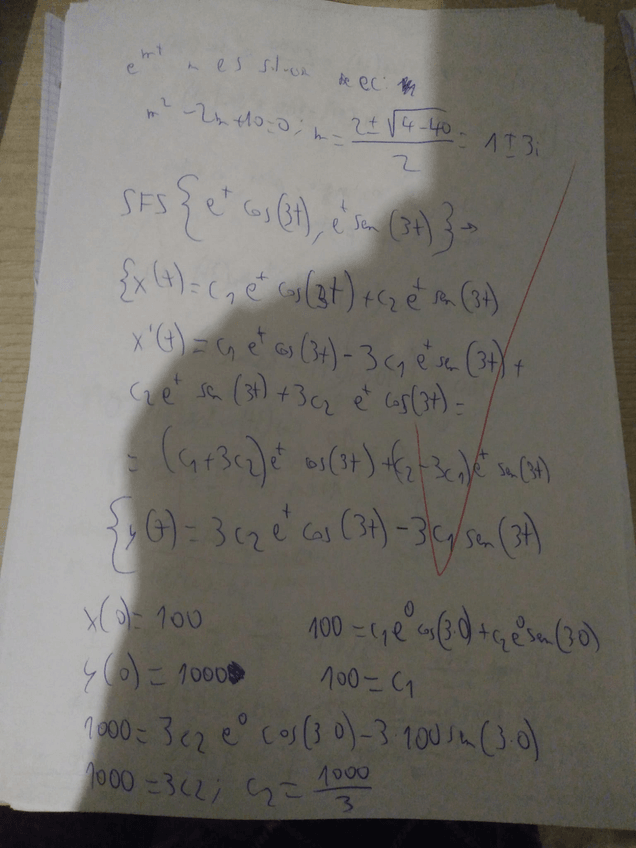 e^{mt} es
m² - 2m + 10 = 0; m = \frac{2 ± \sqrt{4-40}}{2} = 1 ± 3i
SFS { e^t cos(3t), e^t sen(3t) } →
{ x(t) = c₁ e^t cos(3t) + c₂ e^t sen(3t)
x'(t) = c₁ e^t cos(3t) - 3c₁ e^t sen(3t) +
c₂ e^t sen(3t) + 3c₂ e^t cos(3t) =
= (c₁ + 3c₂) e^t cos(3t) + (c₂ - 3c₁) e^t sen(3t)
{ y(t) = 3c₂ e^t cos(3t) - 3c₁ sen(3t)
x(0) = 100 100 = c₁ e⁰ cos(3·0) + c₂ e⁰ sen(3·0)
y(0) = 1000 100 = c₁
1000 = 3c₂ e⁰ cos(3·0) - 3·100 sen(3·0)
1000 = 3c₂; c₂ = \frac{1000}{3}